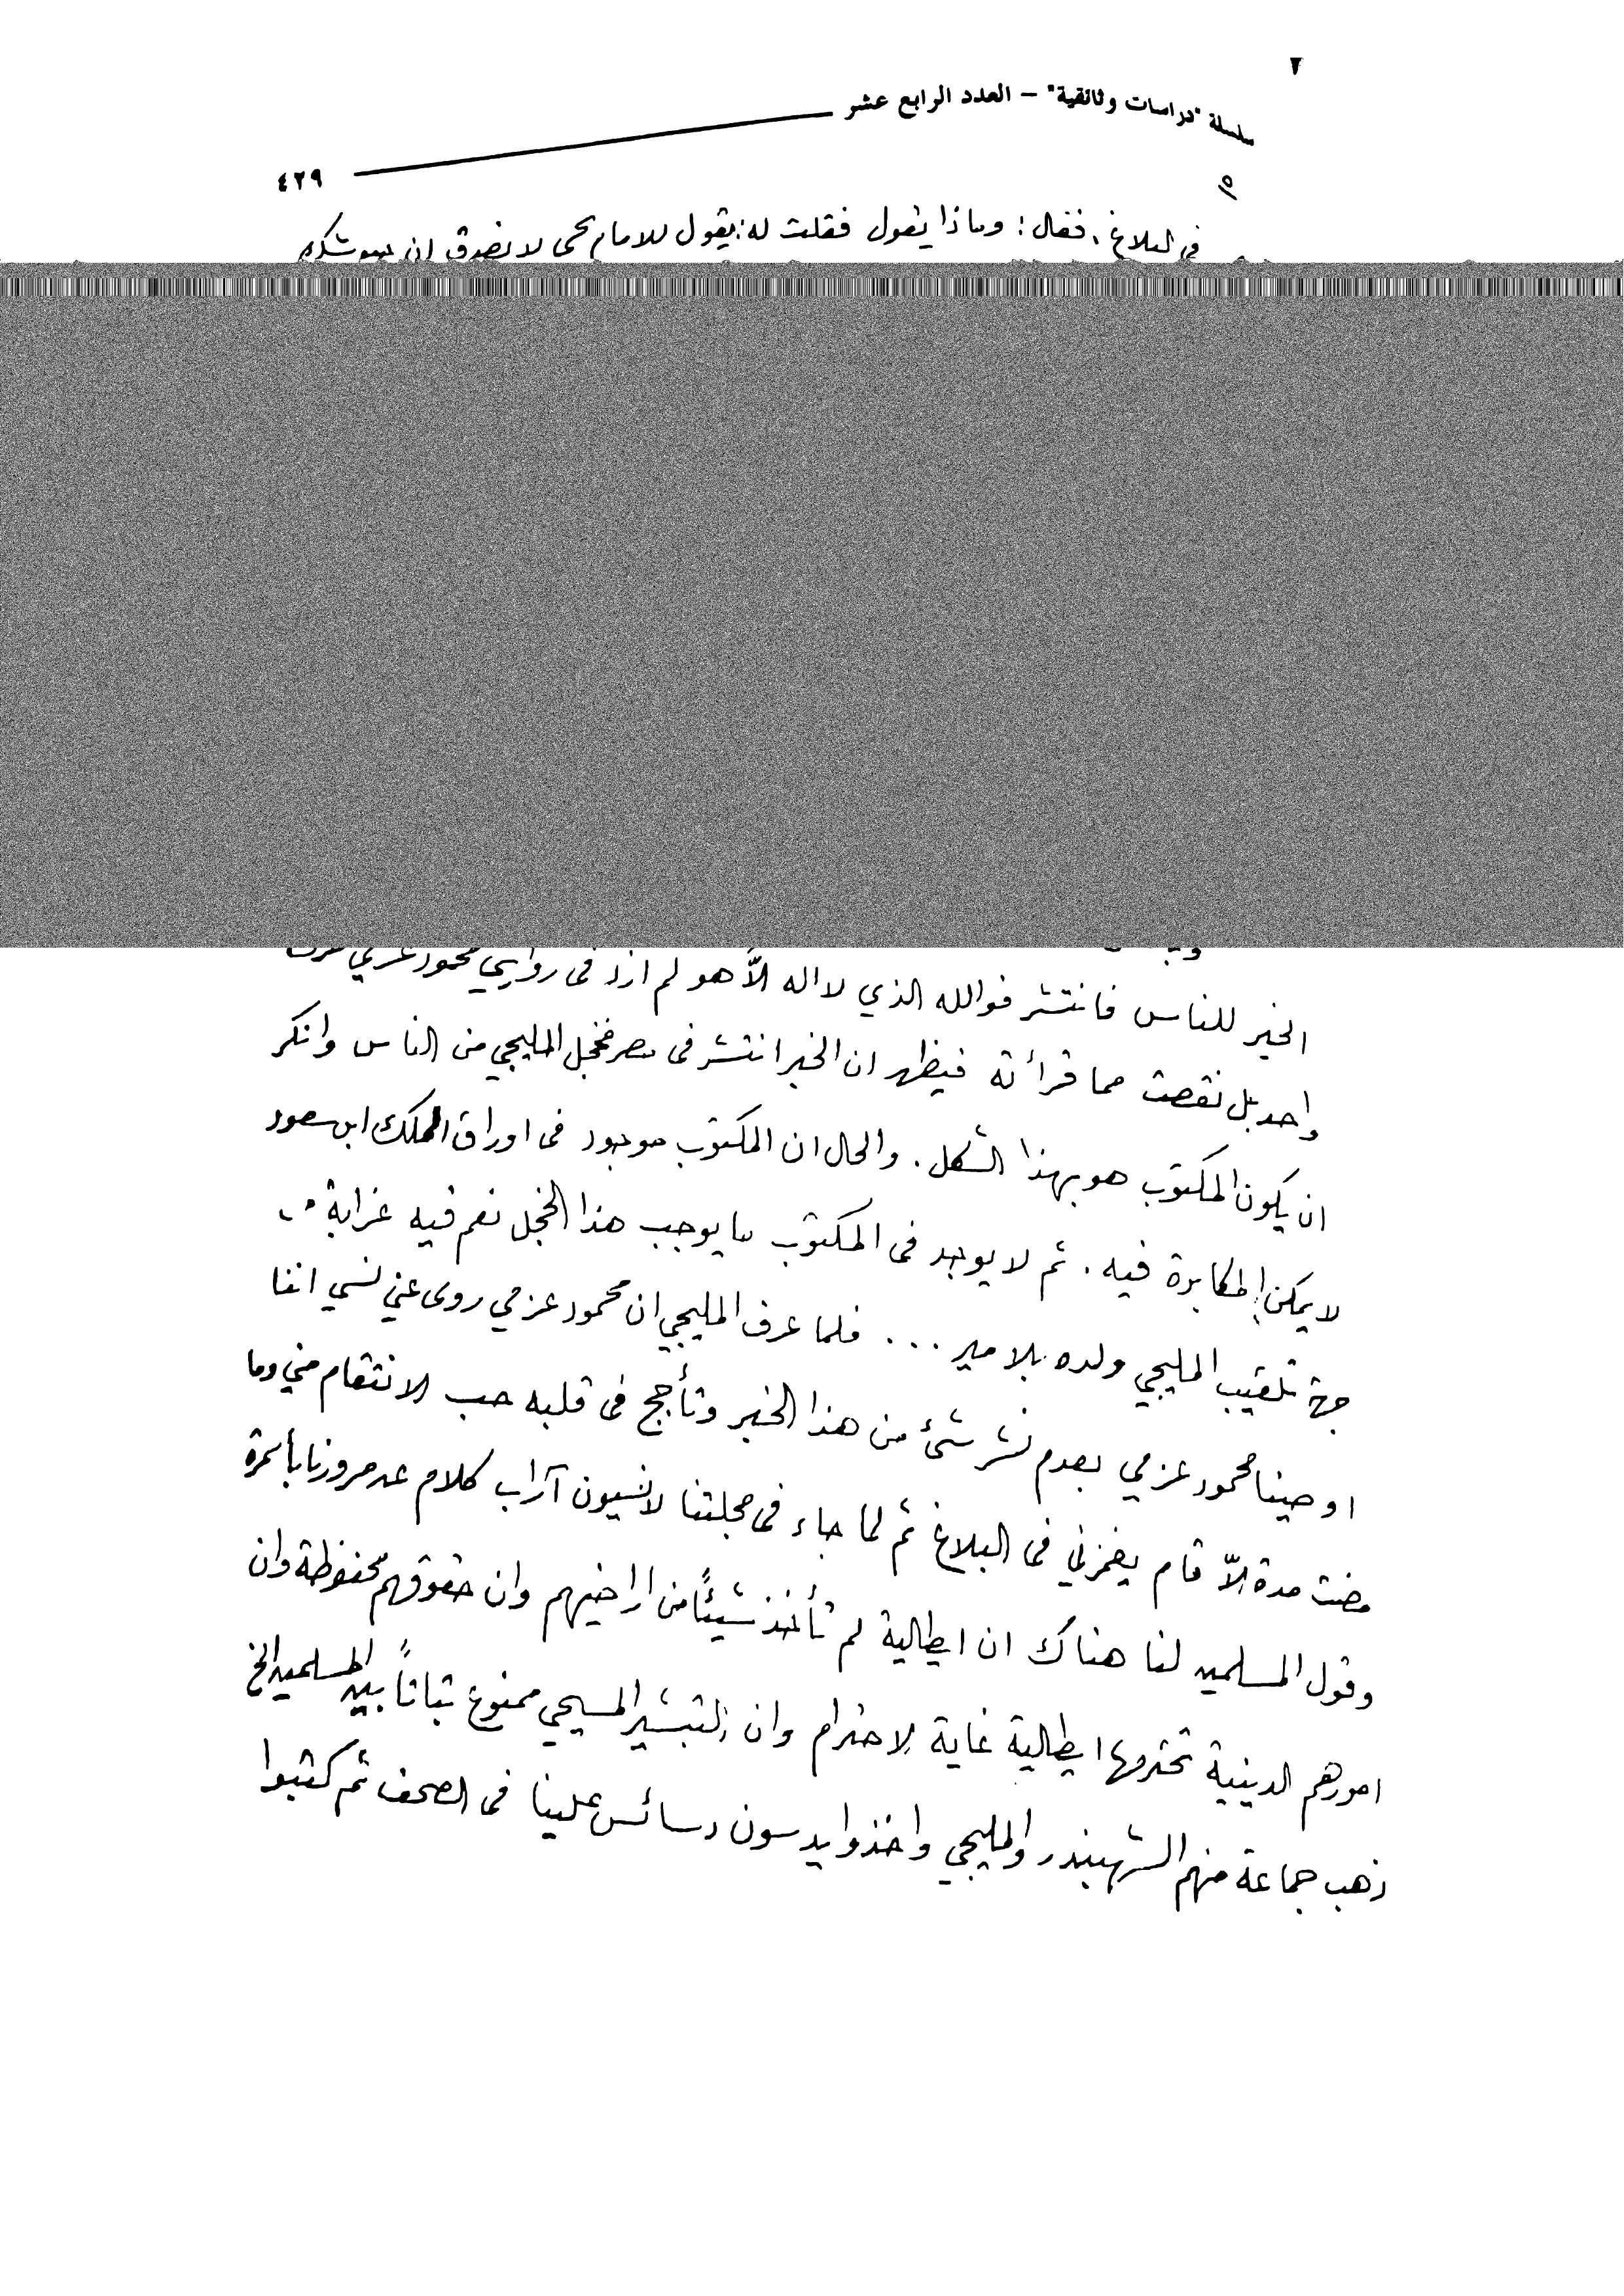 ٢
سلسلة "دراسات وثائقية" – العدد الرابع عشر
٤٢٩
١٥
في البلاغ. فقال: وماذا يقول فقلت له: يقول للامام يحيى لا نصدق ان
الخبر للناس فانتشر فوالله الذي لا اله الاّ هو لم ازد فى روايتي لمحمود عزمي حرف
واحد بل نقصت مما قرأته فيظهر ان الخبر انتشر فى مصر فخجل المليجي من الناس وانكر
ان يكون المكتوب هو بهذا الشكل. والحال ان المكتوب موجود فى اوراق الملك ابن سعود
لا يمكن المكابرة فيه. ثم لا يوجد فى المكتوب ما يوجب هذا الخجل نعم فيه غرابة من
جهة تلقيب المليجي ولده بالامير ... فلما عرف المليجي ان محمود عزمي روى عني نسي اننا
اوصينا محمود عزمي بعدم نشر شئ من هذا الخبر وتأجج فى قلبه حب الانتقام مني وما
مضت مدة الاّ قام يغمزني فى البلاغ ثم لما جاء فى مجلتنا لاناسيون آراب كلام عن مرورنا بأسمرة
وقول المسلمين لنا هناك ان ايطالية لم تأخذ شيئاً من اراضيهم وان حقوقهم محفوظة وان
امورهم الدينية تحترمها ايطالية غاية الاحترام وان التبشير المسيحي ممنوع بتاتاً بين المسلمين الخ
ذهب جماعة منهم الشهبندر والمليجي واخذوا يدسون دسائس علينا فى الصحف ثم كتبوا